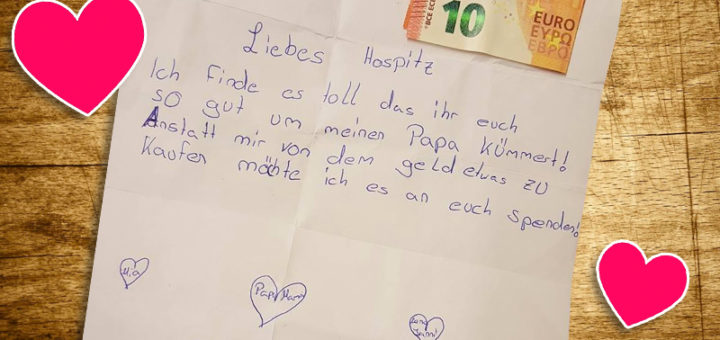 10
BCE ECB
EURO
ΕΥΡΩ
ЕВРО
Liebes Hospitz
Ich finde es toll das ihr euch
so gut um meinen Papa kümmert!
Anstatt mir von dem geld etwas zu
Kaufen möchte ich es an euch spenden!
Mia
Papa Mama